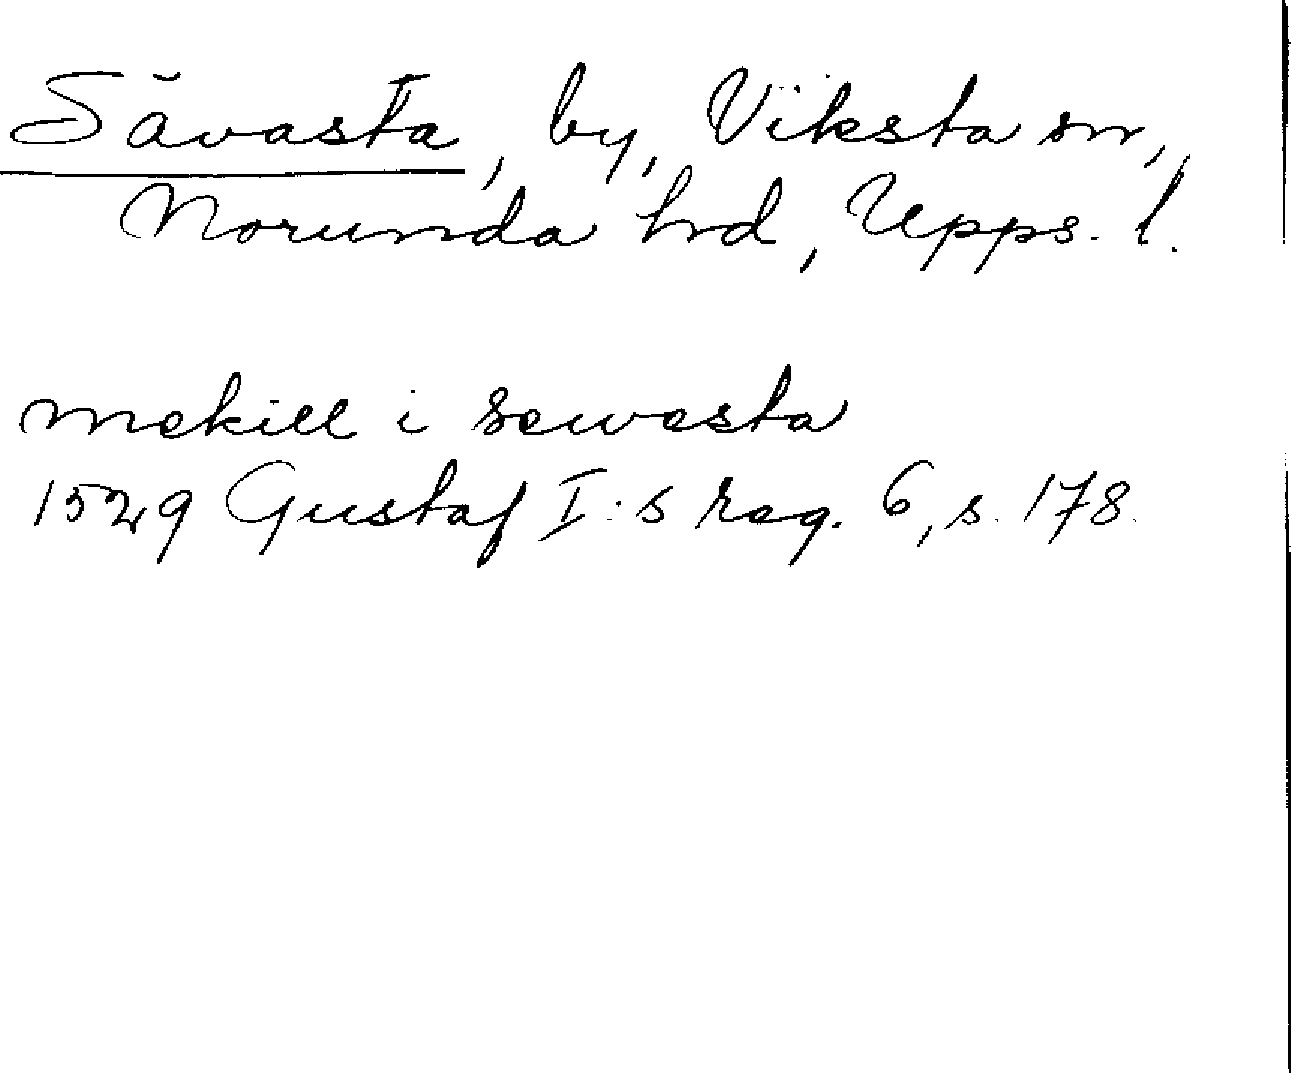 Sävasta, by, Viksta sn,
Norunda hd, Upps. l.
mekill i sewesta
1529 Gustaf I:s reg. 6, s. 178.